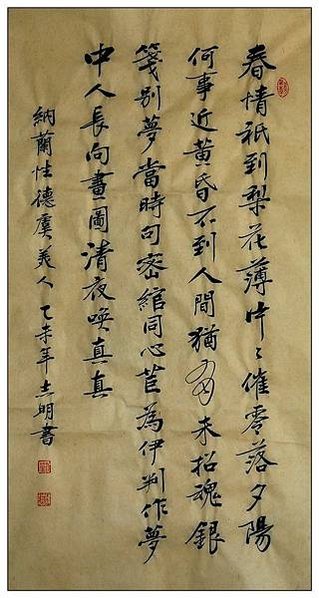 春情祇到梨花薄片〻催零落夕陽
何事近黃昏不到人間猶有未招魂銀
箋別夢當時句密綰同心苣為伊判作夢
中人長向畫圖清夜喚真真
納蘭性德虞美人 乙未年志明書